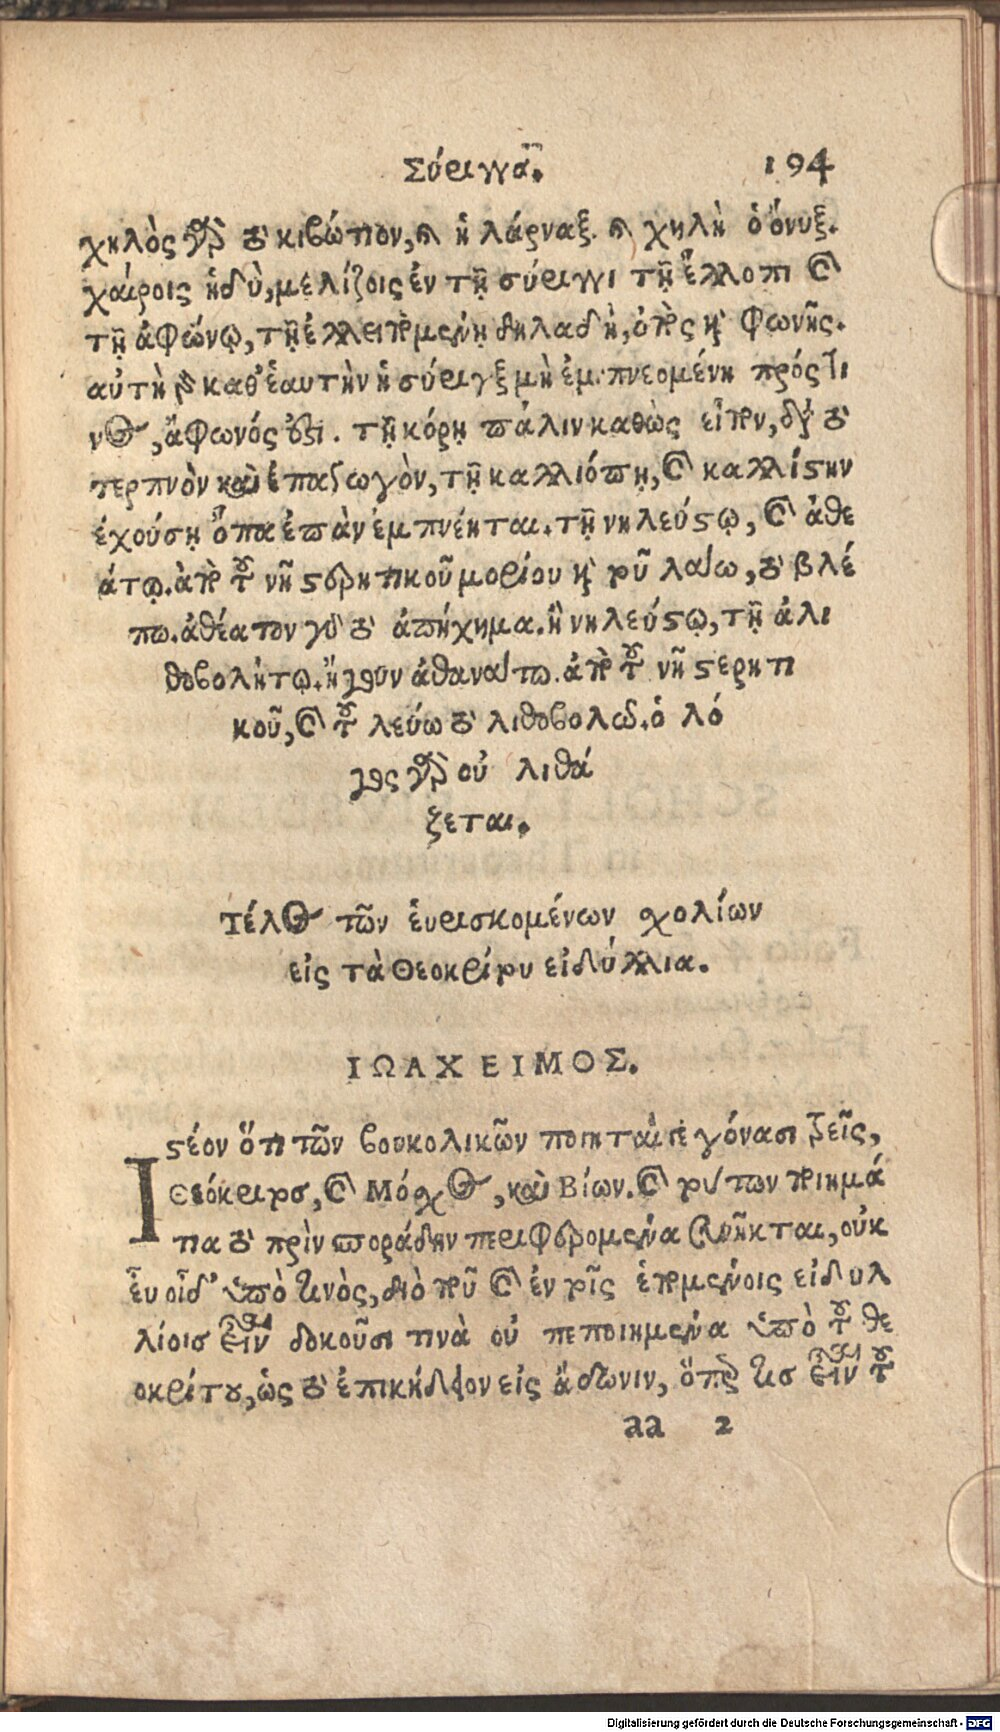 Σύριγγα. 194
χηλὸς γὰρ τὸ κιβώτιον, καὶ ἡ λάρναξ. καὶ χηλὴ ὁ ὄνυξ.
χαίροις ἡδὺ, μελίζοις ἐν τῇ σύριγγι τῇ ἔλλοπι καὶ
τῇ ἀφώνῳ, τῇ ἐλλειπομένῃ δηλαδὴ, ὀπὸς ἤτοι φωνῆς.
αὐτὴ γὰρ καθ' ἑαυτὴν ἡ σύριγξ μὴ ἐμπνεομένη πρός τι
νος, ἄφωνός ἐστι. τῇ κόρῃ πάλιν καθὼς εἶπον, διὰ τὸ
τερπνὸν καὶ ἐπαγωγὸν, τῇ καλλιόπῃ, καὶ καλλίστην
ἐχούσῃ ὄπα ἐπὰν ἐμπνέηται. τῇ νηλεύστῳ, καὶ ἀθε
άτῳ. ἀπὸ τοῦ νη στερητικοῦ μορίου καὶ τοῦ λαύω, τὸ βλέ
πω. ἀθέατον γὰρ τὸ ἀπήχημα. ἢ νηλεύστῳ, τῇ ἀλι
θοβολήτῳ. ἤγουν ἀθανάτῳ. ἀπὸ τοῦ νη στερητι
κοῦ, καὶ τοῦ λεύω τὸ λιθοβολῶ. ὁ λό
γος γὰρ οὐ λιθά
ζεται.
Τέλος τῶν εὑρισκομένων σχολίων
εἰς τὰ Θεοκρίτου εἰδύλλια.
ΙΩΑΧΕΙΜΟΣ.
Ιστέον ὅτι τῶν βουκολικῶν ποιηταὶ γεγόνασι τρεῖς,
Θεόκριτοσ, καὶ Μόσχος, καὶ Βίων. καὶ τούτων ποιημά
τια τὸ πρὶν σποράδην περιφερόμενα συνῆκται, οὐκ
εὖ οἶδ' ὑπὸ τινὸς, διὸ τοῦ καὶ ἐν τοῖς ἑπομένοις εἰδυλ
λίοισ εἶναι δοκοῦσι τινὰ οὐ πεποιημένα ὑπὸ τοῦ θε
οκρίτου, ὡς τὸ ἐπικήδειον εἰς ἄδωνιν, ὅπερ τισ εἶναι τοῦ
aa 2
Digitalisierung gefördert durch die Deutsche Forschungsgemeinschaft - DFG